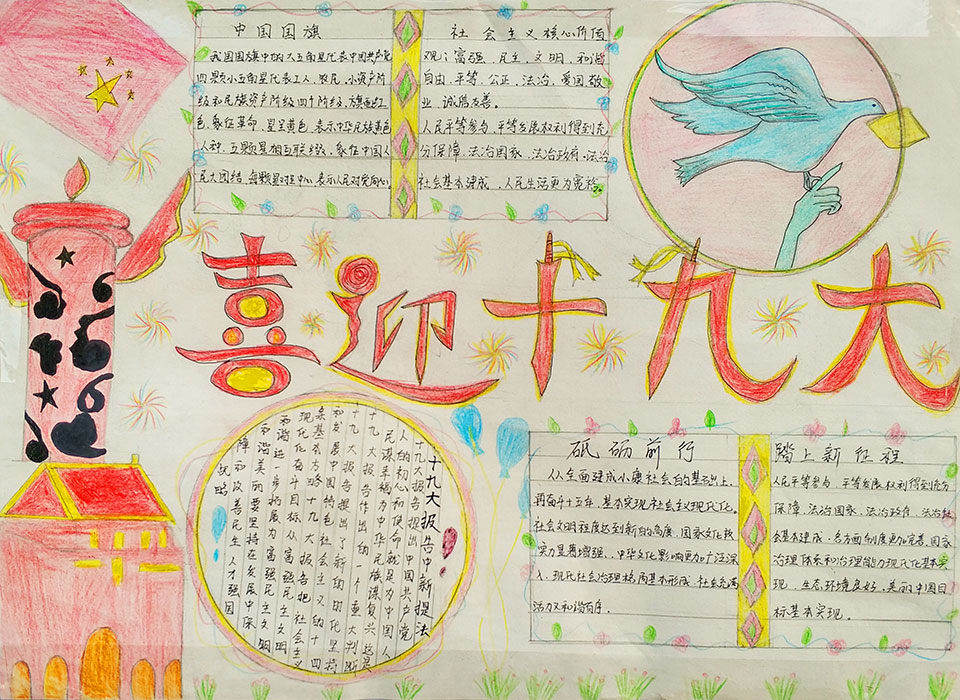 中国国旗
我国国旗中的大五角星代表中国共产党
四颗小五角星代表工人、农民、小资产阶
级和民族资产阶级四个阶级。旗面红
色,象征革命,星呈黄色,表示中华民族黄色
人种,五颗星相互联络,象征中国人
民大团结,每颗星对中心,表示人民对党向心
社会主义核心价值
观:富强、民主、文明、和谐
自由、平等、公正、法治、爱国敬
业、诚信友善。
人民平等参与,平等发展权利得到充
分保障,法治国家,法治政府,法治
社会基本建成,人民生活更为宽裕。
喜迎十九大
十九大报告中新提法
十九大报告提出中国共产党
人的初心和使命就是为中国人
民谋幸福,为中华民族谋复兴,这是
十九大报告作出的一个重大判断
十九大报告提出了新的时代坚持
和发展中国特色社会主义的十四
条基本方略十九大报告把社会主义
现代化奋斗目标从富强民主文明
和谐进一步拓展为富强民主文明
和谐美丽要坚持在发展中保
障和改善民生人才强国
战略
砥砺前行
从全面建成小康社会的基础上,
再奋斗十五年,基本实现社会主义现代化。
社会文明程度达到新的高度,国家文化软
实力显著增强,中华文化影响更加广泛深
入,现代社会治理格局基本形成,社会充满
活力又和谐有序。
踏上新征程
人民平等参与,平等发展权利得到充分
保障,法治国家,法治政府,法治社
会基本建成,各方面制度更加完善,国家
治理体系和治理能力现代化基本实
现,生态环境良好,美丽中国目
标基本实现。